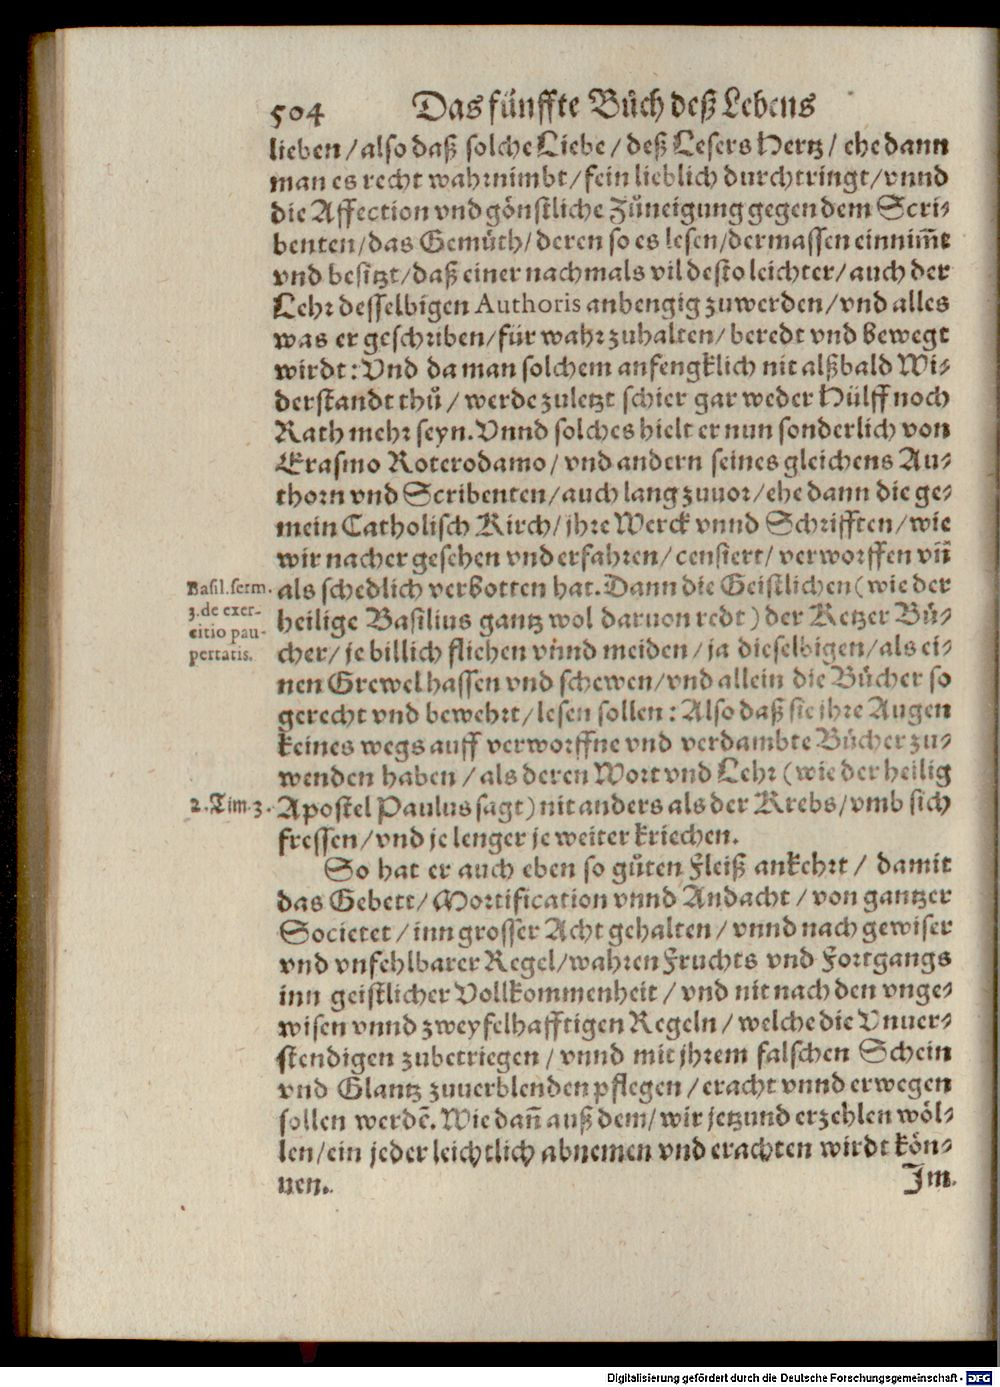 504 Das fünffte Bůch deß Lebens
lieben/also daß solche Liebe/deß Lesers Hertz/ehe dann
man es recht wahrnimbt/fein lieblich durchtringt/vnnd
die Affection vnd gönstliche Zůneigung gegen dem Scri-
benten/das Gemüth/deren so es lesen/dermassen einnim̃t
vnd besitzt/daß einer nachmals vil desto leichter/auch der
Lehr desselbigen Authoris anhengig zuwerden/vnd alles
was er geschriben/für wahr zuhalten/beredt vnd bewegt
wirdt: Vnd da man solchem anfengklich nit alßbald Wi-
derstandt thů/werde zuletzt schier gar weder Hülff noch
Rath mehr seyn. Vnnd solches hielt er nun sonderlich von
Erasmo Roterodamo/vnd andern seines gleichens Au-
thorn vnd Scribenten/auch lang zuuor/ehe dann die ge-
mein Catholisch Kirch/jhre Werck vnnd Schrifften/wie
wir nacher gesehen vnd erfahren/censiert/verworffen vñ
Basil. serm. 3. de exer-citio pau-pertatis.
als schedlich verbotten hat. Dann die Geistlichen (wie der
heilige Basilius gantz wol daruon redt) der Ketzer Bů-
cher/je billich fliehen vnnd meiden/ja dieselbigen/als ei-
nen Grewel hassen vnd schewen/vnd allein die Bücher so
gerecht vnd bewehrt/lesen sollen: Also daß sie jhre Augen
keines wegs auff verworffne vnd verdambte Bücher zu-
wenden haben/als deren Wort vnd Lehr (wie der heilig
2. Tim. 3.
Apostel Paulus sagt) nit anders als der Krebs/vmb sich
fressen/vnd je lenger je weiter kriechen.
So hat er auch eben so gůten Fleiß ankehrt/damit
das Gebett/Mortification vnnd Andacht/von gantzer
Societet/inn grosser Acht gehalten/vnnd nach gewiser
vnd vnfehlbarer Regel/wahren Fruchts vnd Fortgangs
inn geistlicher Vollkommenheit/vnd nit nach den vnge-
wisen vnnd zweyfelhafftigen Regeln/welche die Vnuer-
stendigen zubetriegen/vnnd mit jhrem falschen Schein
vnd Glantz zuuerblenden pflegen/eracht vnnd erwegen
sollen werdẽ. Wie dañ auß dem/wir jetzund erzehlen wöl-
len/ein jeder leichtlich abnemen vnd erachten wirdt kön-
nen.
Jm
Digitalisierung gefördert durch die Deutsche Forschungsgemeinschaft - DFG